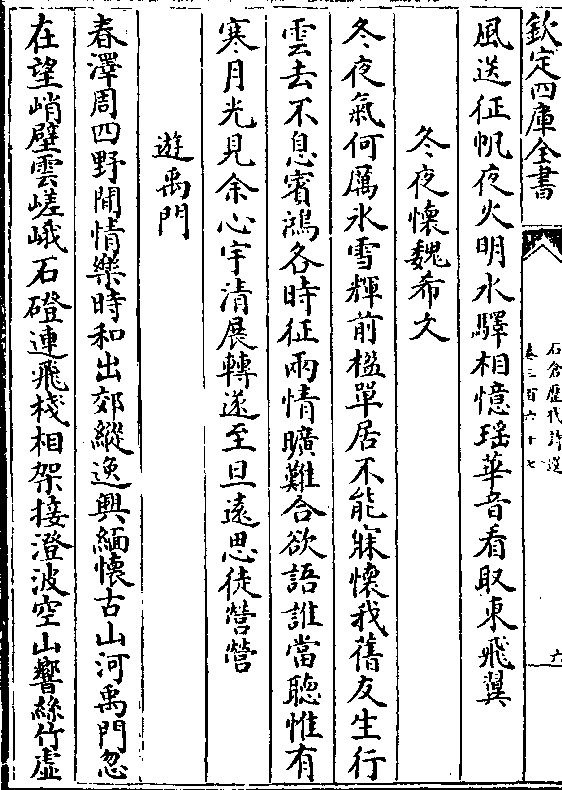 欽定四庫全書
石倉歷代詩選
卷三百六十七
六
風送征帆夜火明水驛相憶瑶華音看取東飛翼
冬夜懷魏希文
冬夜氣何厲氷雪輝前楹單居不能寐懷我舊友生行
雲去不息賓鴻各時征兩情曠難合欲語誰當聦惟有
寒月光見余心宇清展轉遂至旦遠思徒營營
遊禹門
春澤周四野閒情樂時和出郊縱逸興緬懷古山河禹門忽
在望峭壁雲嵯峨石磴連飛棧相架接澄波空山響絲竹虚